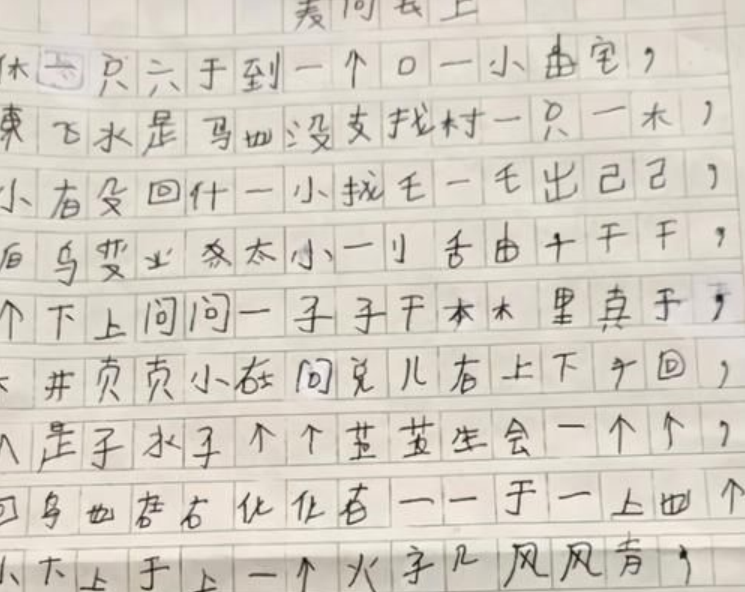 问我上
休只六于到一个口一小由宅，
东飞水是马也没支找村一只一木，
小右没回什一小找毛一毛出己己，
后乌业太小一刂舌由十干干，
个下上问问一子子干本木里真于，
井页页小在问兑儿右上下于回，
人是子水子个个蓝蓝生会一个个，
回乌也在右化化右一一于一上也个
小木上于上一个火字几风风青，